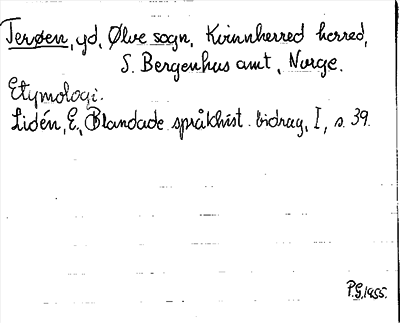 Terøen, yd, Ølve sogn, Kvinnherred herred,
S. Bergenhus amt, Norge.
Etymologi.
Lidén, E., Blandade språkhist. bidrag, I, s. 39.
P.G. 1955.